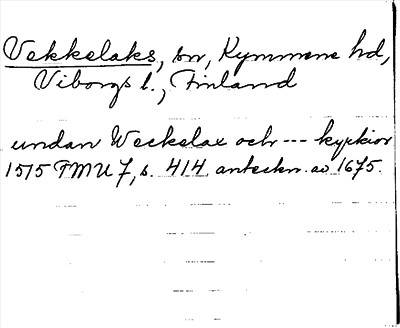 Vekkelaks, sn, Kymmene hd,
Viborgs l., Finland
undan Weckelax och --- kyrkior
1515 TMU 7, s. 414. anteckn. av 1675.